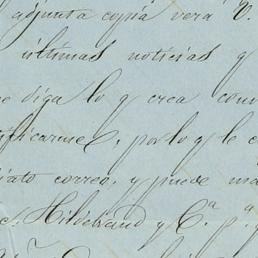 adjunta copia verá V.
últimas noticias q
diga lo q crea conv
ificarme, por lo q le
iato correo, y puede ma
e. Hildebrand y Cª pª q